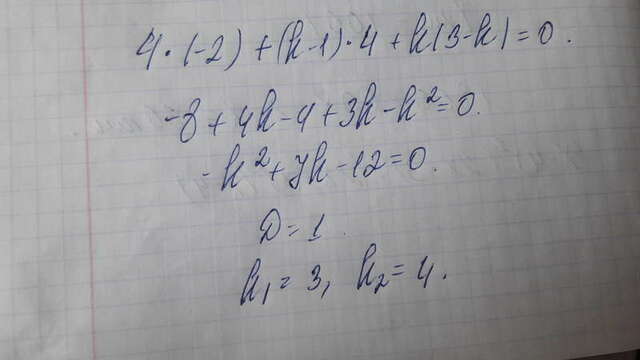 4·(-2)+(k-1)·4+k(3-k)=0.
-8+4k-4+3k-k²=0.
-k²+7k-12=0.
D=1
k₁=3, k₂=4.